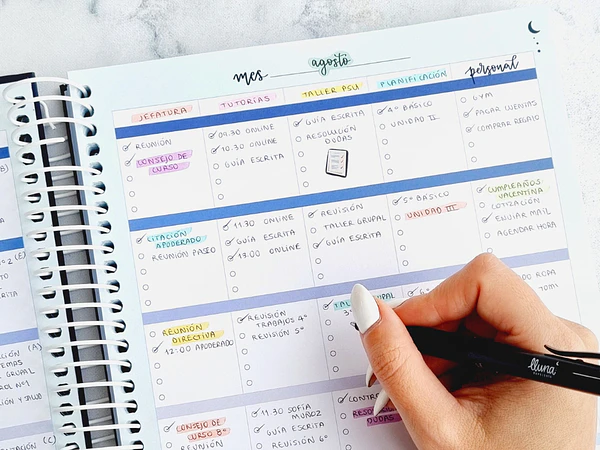 mes agosto
JEFATURA
TUTORIAS
TALLER PSU
PLANIFICACIÓN
personal
REUNIÓN
CONSEJO DE
CURSO
09:30 ONLINE
10:30 ONLINE
GUÍA ESCRITA
GUÍA ESCRITA
RESOLUCIÓN
DUDAS
4° BÁSICO
UNIDAD II
GYM
PAGAR CUENTAS
COMPRAR REGALO
CITACIÓN
APODERADO
REUNIÓN PASEO
11:30 ONLINE
GUÍA ESCRITA
13:00 ONLINE
REVISIÓN
TALLER GRUPAL
GUÍA ESCRITA
5° BÁSICO
UNIDAD III
CUMPLEAÑOS
VALENTINA
COTIZACIÓN
ENVIAR MAIL
AGENDAR HORA
REUNIÓN
DIRECTIVA
12:00 APODERADO
REVISIÓN
TRABAJOS 4°
REVISIÓN 5°
ROPA
CONSEJO DE
CURSO 8°
REUNIÓN
11:30 SOFÍA
MUÑOZ
GUÍA ESCRITA
REVISIÓN 6°
DUDAS
lluna